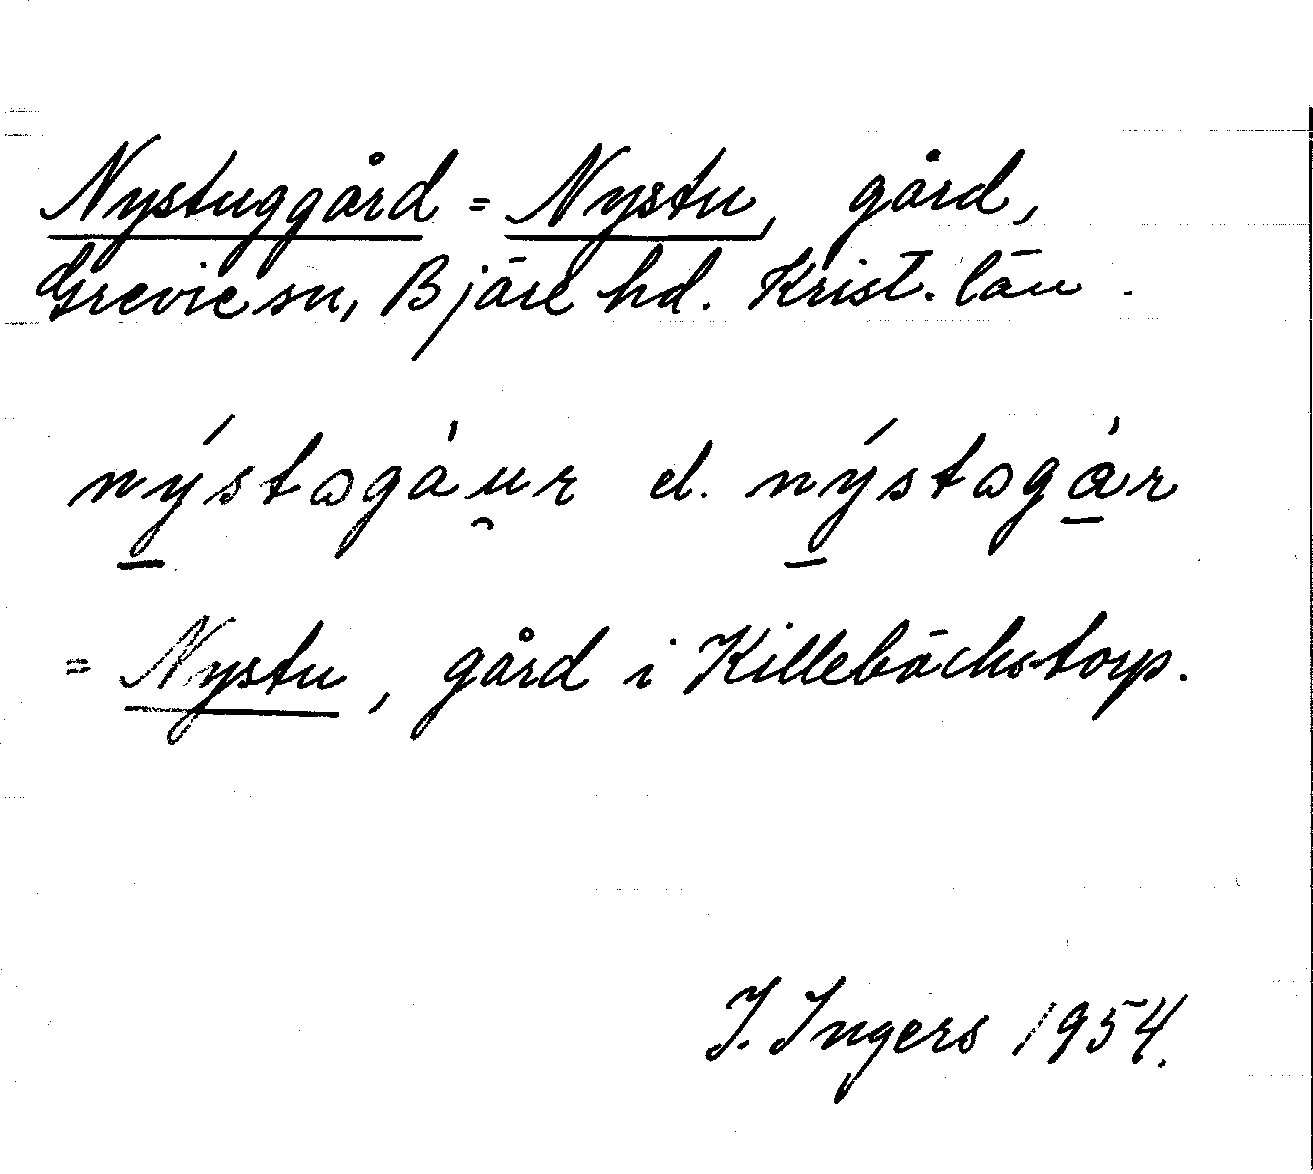 Nystuggård = Nystu, gård,
Grevie sn, Bjäre hd. Krist. län.
nýstəgàu̯r el. nýstəgàr
= Nystu, gård i Killebäckstorp.
I. Ingers 1954.